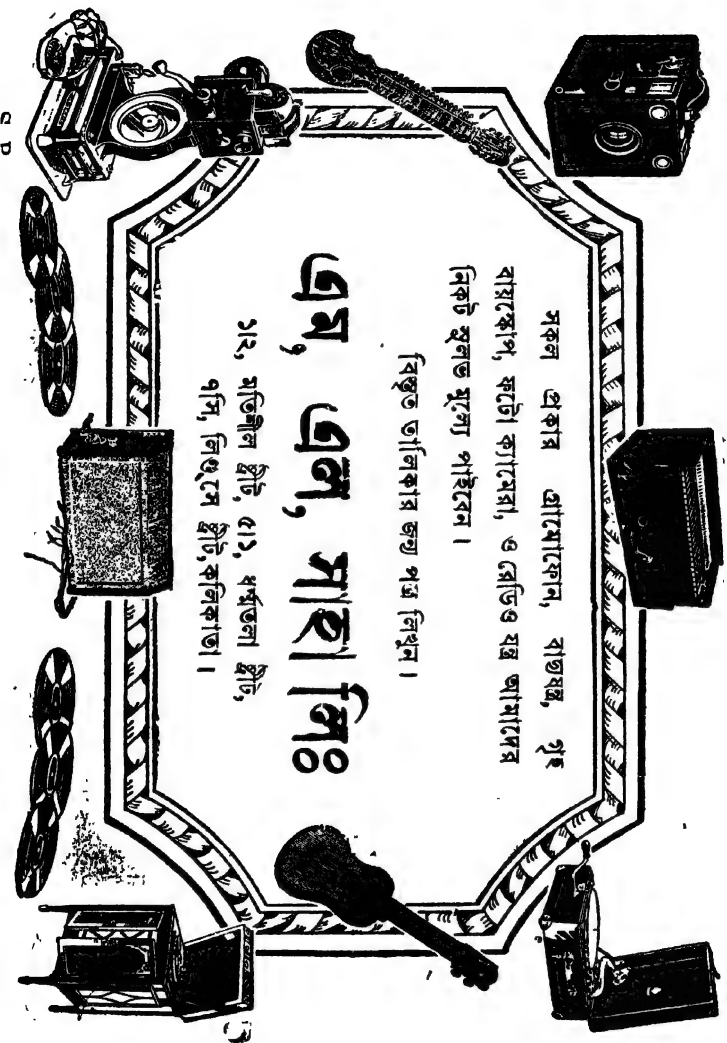 সকল প্রকার গ্রামোফোন, বাদ্যযন্ত্র, গৃহ
বায়স্কোপ, ফটো ক্যামেরা, ও রেডিও যন্ত্র আমাদের
নিকট সুলভ মূল্যে পাইবেন ।
বিস্তৃত তালিকার জন্য পত্র লিখুন ।
এম, এল, সাহা লিঃ
১।২, মতিশীল ষ্ট্রীট, ৫।১, ধর্ম্মতলা ষ্ট্রীট,
পসি, লিণ্ডসে ষ্ট্রীট, কলিকাতা ।